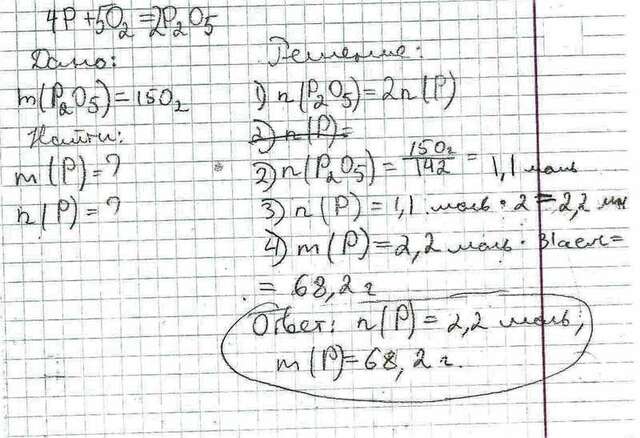 4P + 5O₂ = 2P₂O₅
Дано:
m(P₂O₅) = 150г
Найти:
m(P) = ?
n(P) = ?
Решение:
1) n(P₂O₅) = 2n(P)
2) n(P) =
2) n(P₂O₅) = 150г/142 = 1,1 моль
3) n(P) = 1,1 моль · 2 = 2,2
4) m(P) = 2,2 моль · 31 =
= 68,2 г
Ответ: n(P) = 2,2 моль;
m(P) = 68,2 г.